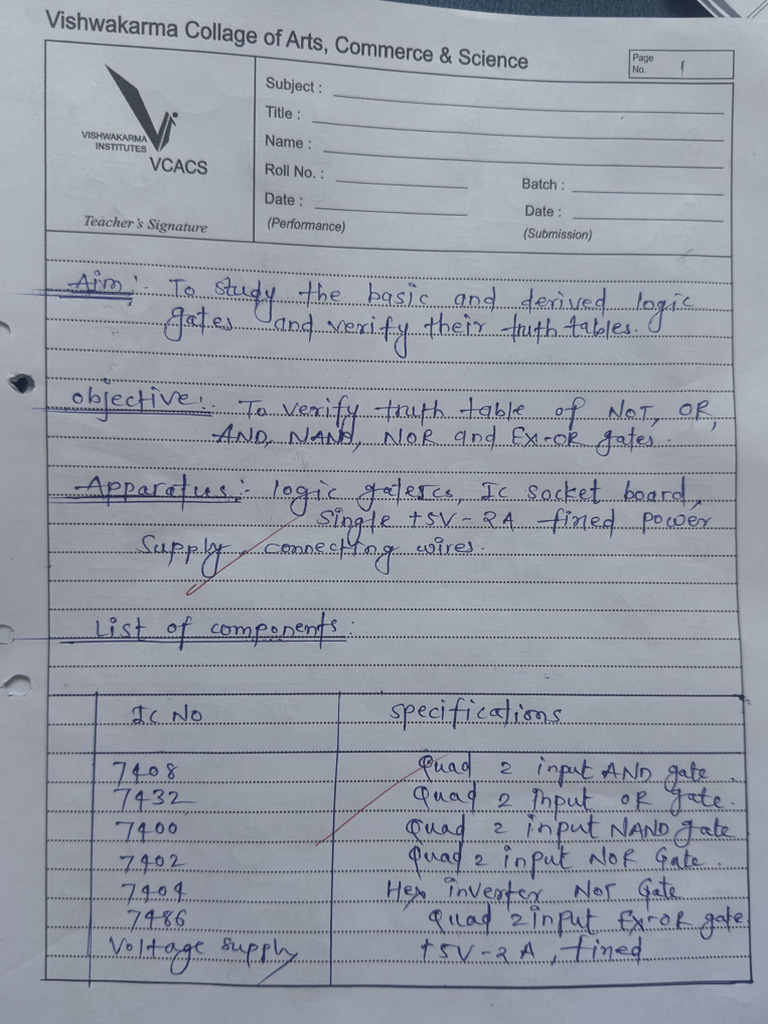 Vishwakarma Collage of Arts, Commerce & Science
Page No. 1
VISHWAKARMA
INSTITUTES
VCACS
Teacher's Signature
Subject :
Title :
Name :
Roll No. :
Batch :
Date :
(Performance)
Date :
(Submission)
Aim :- To study the basic and derived logic
gates and verify their truth tables.
objective :- To verify truth table of NOT, OR,
AND, NAND, NOR and Ex-OR gates.
Apparatus :- logic gatesIcs, Ic socket board,
Single +5V-2A fined power
Supply, connecting wires.
List of components :
Ic NO specifications
7408 Quad 2 input AND gate.
7432 Quad 2 Input OR gate.
7400 Quad 2 input NAND gate
7402 Quad 2 input NOR Gate.
7404 Hex inverter NOT Gate
7486 Quad 2 input Ex-OR gate
Voltage supply +5V-2A, fined